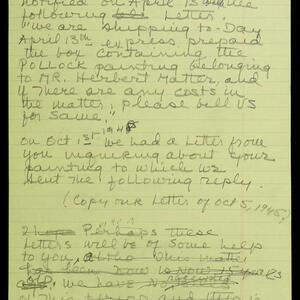 notified on April 13
following Letter.
"we are shipping to-Day
April 13th express prepaid
the box containing the
POLLOCK painting Belonging
to MR. Herbert Matter, and
if There are any costs in
the matter, please bill US
for Same."
on Oct 1st 1945 we had a Letter from
you inquiring about your
painting to which we
sent the following reply.
(Copy our Letter of oct 5, 1945)
Perhaps these
Letters will be of Some help
to you, altho This matter
has been now is Now 15 years
old, we have